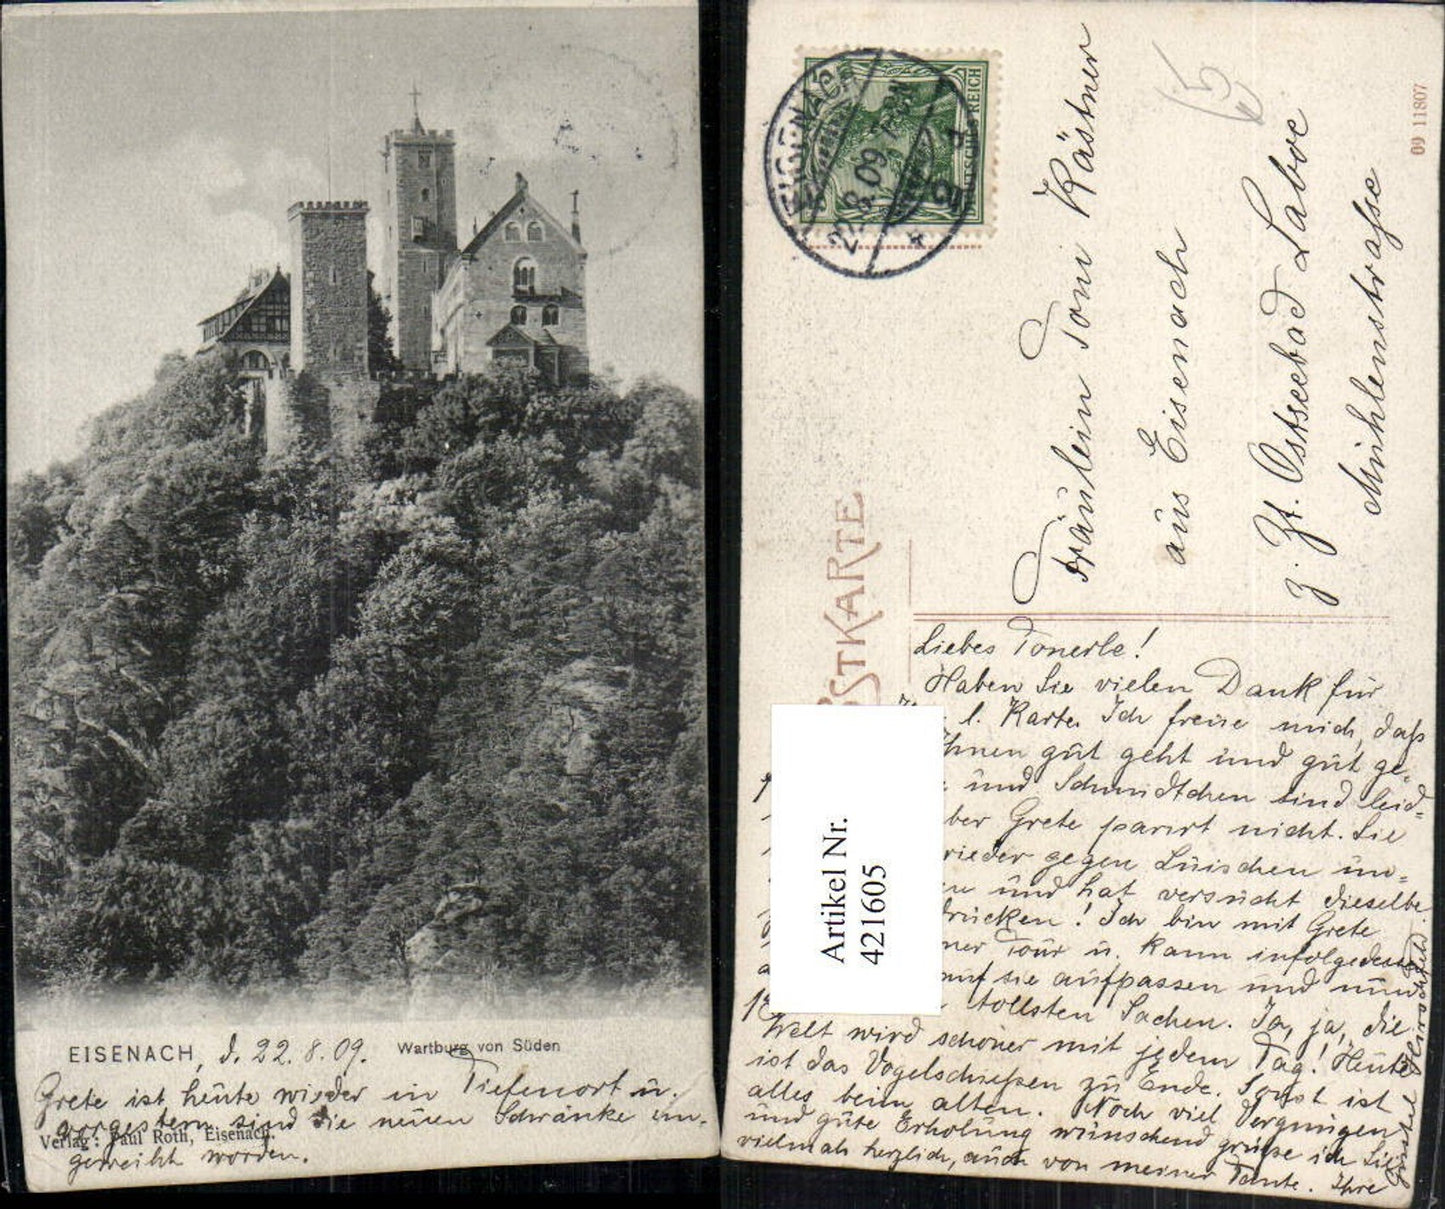 EISENACH, d. 22. 8. 09. Wartburg von Süden
Grete ist heute wieder in Tiefenort u.
vorgestern sind die neuen Schränke ein-
Verlag: Paul Roth, Eisenach.
geweiht worden.
EISENACH
22.8.09
DEUTSCHES REICH
09 11807
15
Fräulein Toni Kästner
aus Eisenach
z. Zt. Ostseebad Laboe
Mühlenstrasse
POSTKARTE
Liebes Tonerle!
Haben Sie vielen Dank für
l. Karte. Ich freue mich, daß
Ihnen gut geht und gut ge-
und Schmidtchen sind leid-
ber Grete pariert nicht. Sie
wieder gegen Luischen un-
und hat versucht dieselbe
drücken! Ich bin mit Grete
ner Tour u. kann infolgedessen
auf sie aufpassen und nun
tollsten Sachen. Ja, ja, die
Welt wird schöner mit jedem Tag! Heute
ist das Vogelschießen zu Ende. Sonst ist
alles beim alten. Noch viel Vergnügen
und gute Erholung wünschend grüße ich Sie
vielmals herzlich, auch von meiner Tante. Ihre
Gretel Hirschfeld
Artikel Nr.
421605